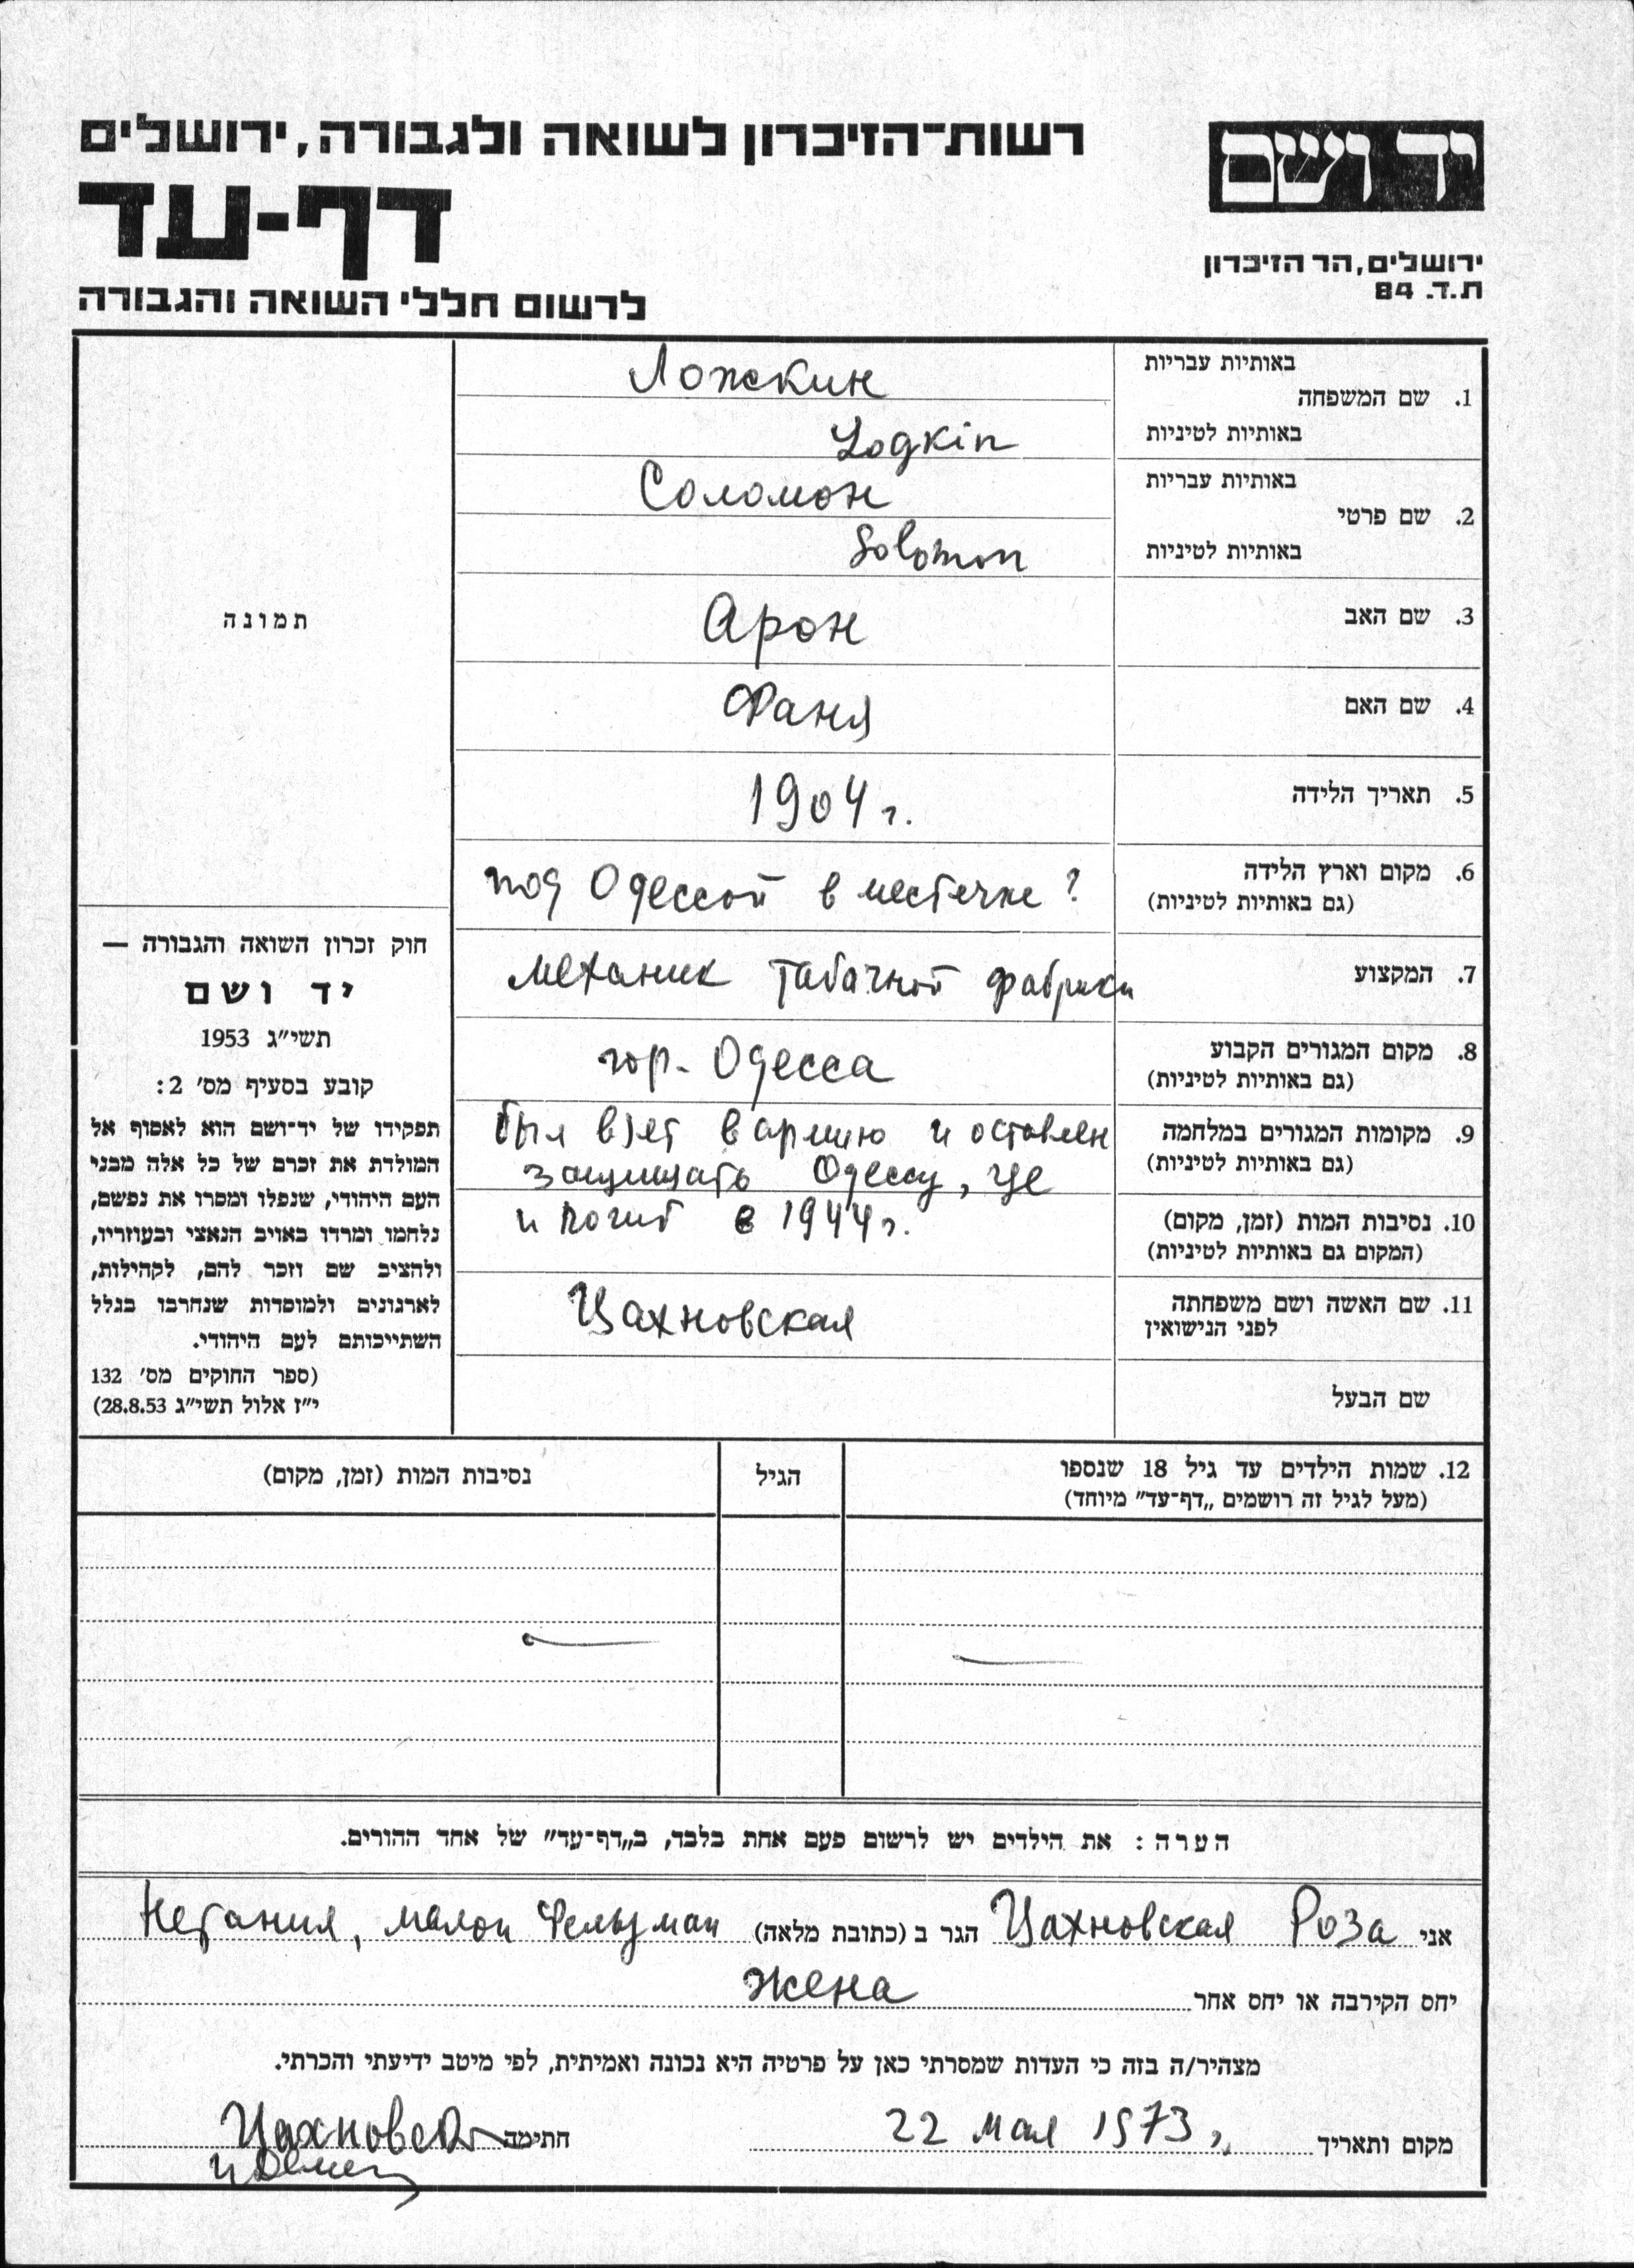 רשות־הזיכרון לשואה ולגבורה, ירושלים
יד ושם
דף-עד
ירושלים, הר הזיכרון
ת.ד. 84
לרשום חללי השואה והגבורה
באותיות עבריות
Ложкин
1. שם המשפחה
באותיות לטיניות
Logkin
באותיות עבריות
Соломон
2. שם פרטי
באותיות לטיניות
Solomon
תמונה
3. שם האב
Арон
4. שם האם
Фаня
5. תאריך הלידה
1904 г.
6. מקום וארץ הלידה
(גם באותיות לטיניות)
под Одессой в местечке ?
7. המקצוע
механик табачной фабрики
8. מקום המגורים הקבוע
(גם באותיות לטיניות)
гор. Одесса
9. מקומות המגורים במלחמה
(גם באותיות לטיניות)
был взят в армию и оставлен
защищать Одессу, где
10. נסיבות המות (זמן, מקום)
(המקום גם באותיות לטיניות)
и погиб в 1944 г.
11. שם האשה ושם משפחתה
לפני הנישואין
Цахновская
שם הבעל
חוק זכרון השואה והגבורה —
יד ושם
תשי״ג 1953
קובע בסעיף מס׳ 2:
תפקידו של יד־ושם הוא לאסוף אל
המולדת את זכרם של כל אלה מבני
העם היהודי, שנפלו ומסרו את נפשם,
נלחמו ומרדו באויב הנאצי ובעוזריו,
ולהציב שם וזכר להם, לקהילות,
לארגונים ולמוסדות שנחרבו בגלל
השתייכותם לעם היהודי.
(ספר החוקים מס׳ 132
י״ז אלול תשי״ג 28.8.53)
12. שמות הילדים עד גיל 18 שנספו
(מעל לגיל זה רושמים „דף־עד״ מיוחד)
הגיל
נסיבות המות (זמן, מקום)
הערה: את הילדים יש לרשום פעם אחת בלבד, ב„דף־עד״ של אחד ההורים.
אני Цахновская Роза הגר ב (כתובת מלאה) Нетания, малон Фельдман
יחס הקירבה או יחס אחר жена
מצהיר/ה בזה כי העדות שמסרתי כאן על פרטיה היא נכונה ואמיתית, לפי מיטב ידיעתי והכרתי.
מקום ותאריך 22 мая 1973 г. חתימה